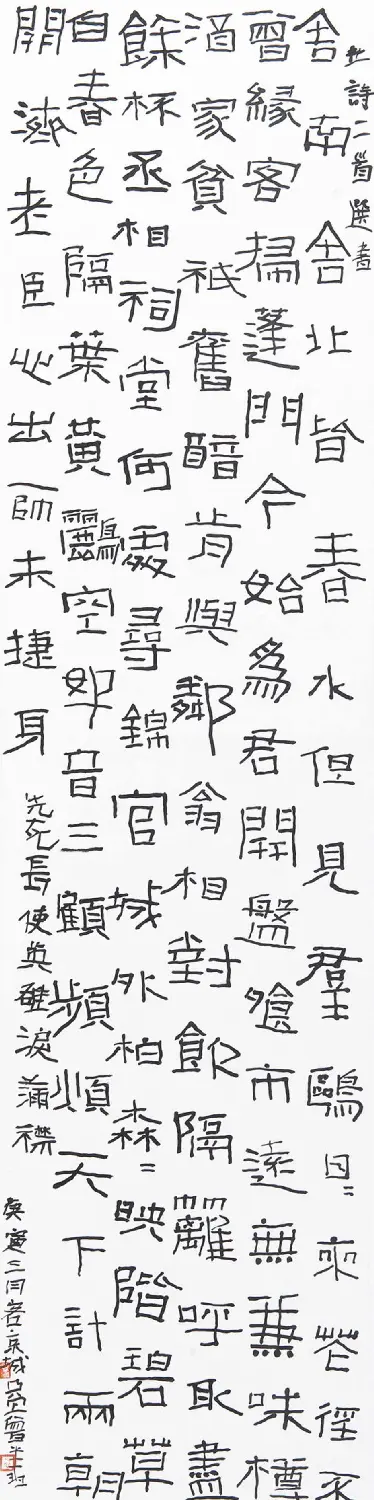 杜詩二首選書
舍南舍北皆春水但見羣鷗日〻來花徑不
曾緣客掃蓬門今始爲君開盤飧市遠無兼味樽
酒家貧祗舊醅肯與鄰翁相對飲隔籬呼取盡
餘杯丞相祠堂何處尋錦官城外柏森〻映階碧草
自春色隔葉黃鸝空好音三顧頻煩天下計兩朝
開濟老臣心出師未捷身先死長使英雄淚滿襟
庚寅三月客京城